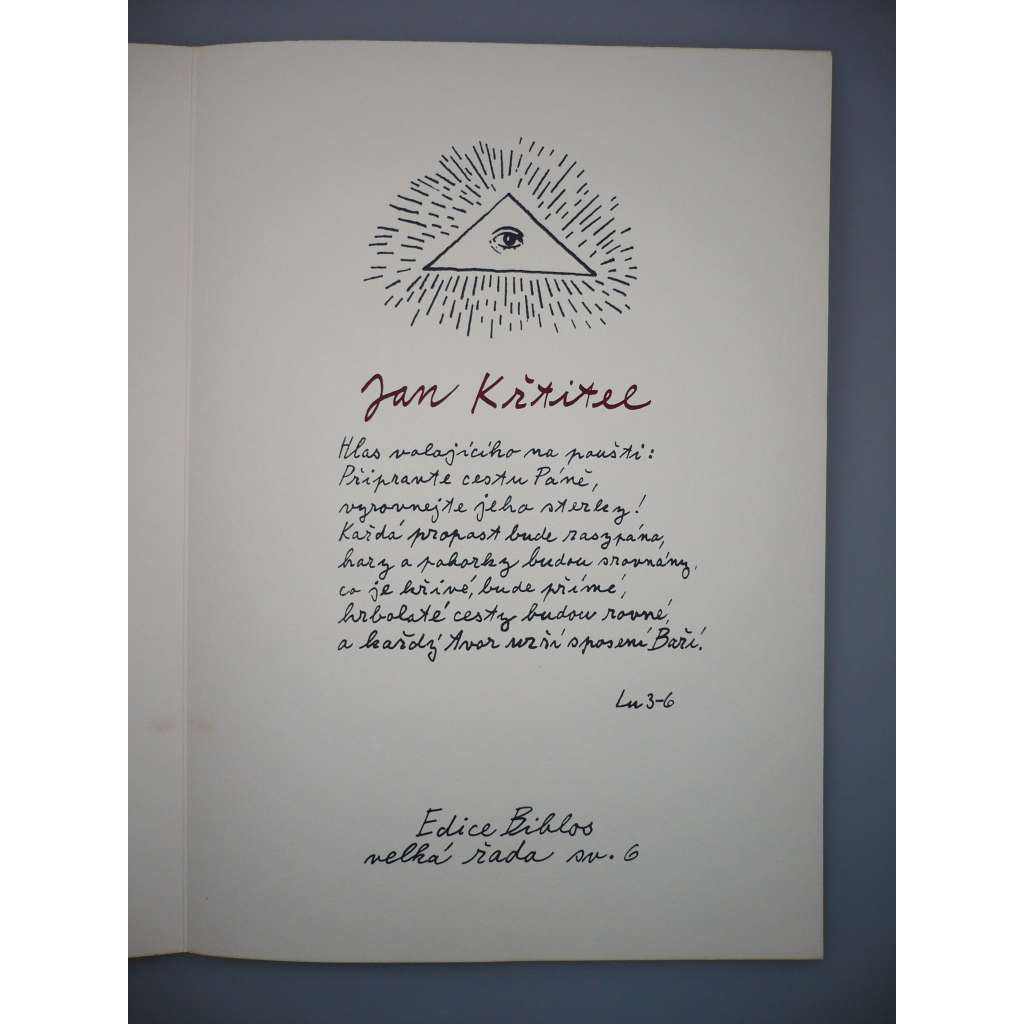 Jan Křtitel
Hlas volajícího na poušti:
Připravte cestu Páně,
vyrovnejte jeho stezky!
Každá propast bude zasypána,
hory a pahorky budou srovnány,
co je křivé, bude přímé,
hrbolaté cesty budou rovné,
a každý tvor uzří spasení Boží.
Lu 3-6
Edice Biblos
velká řada sv. 6